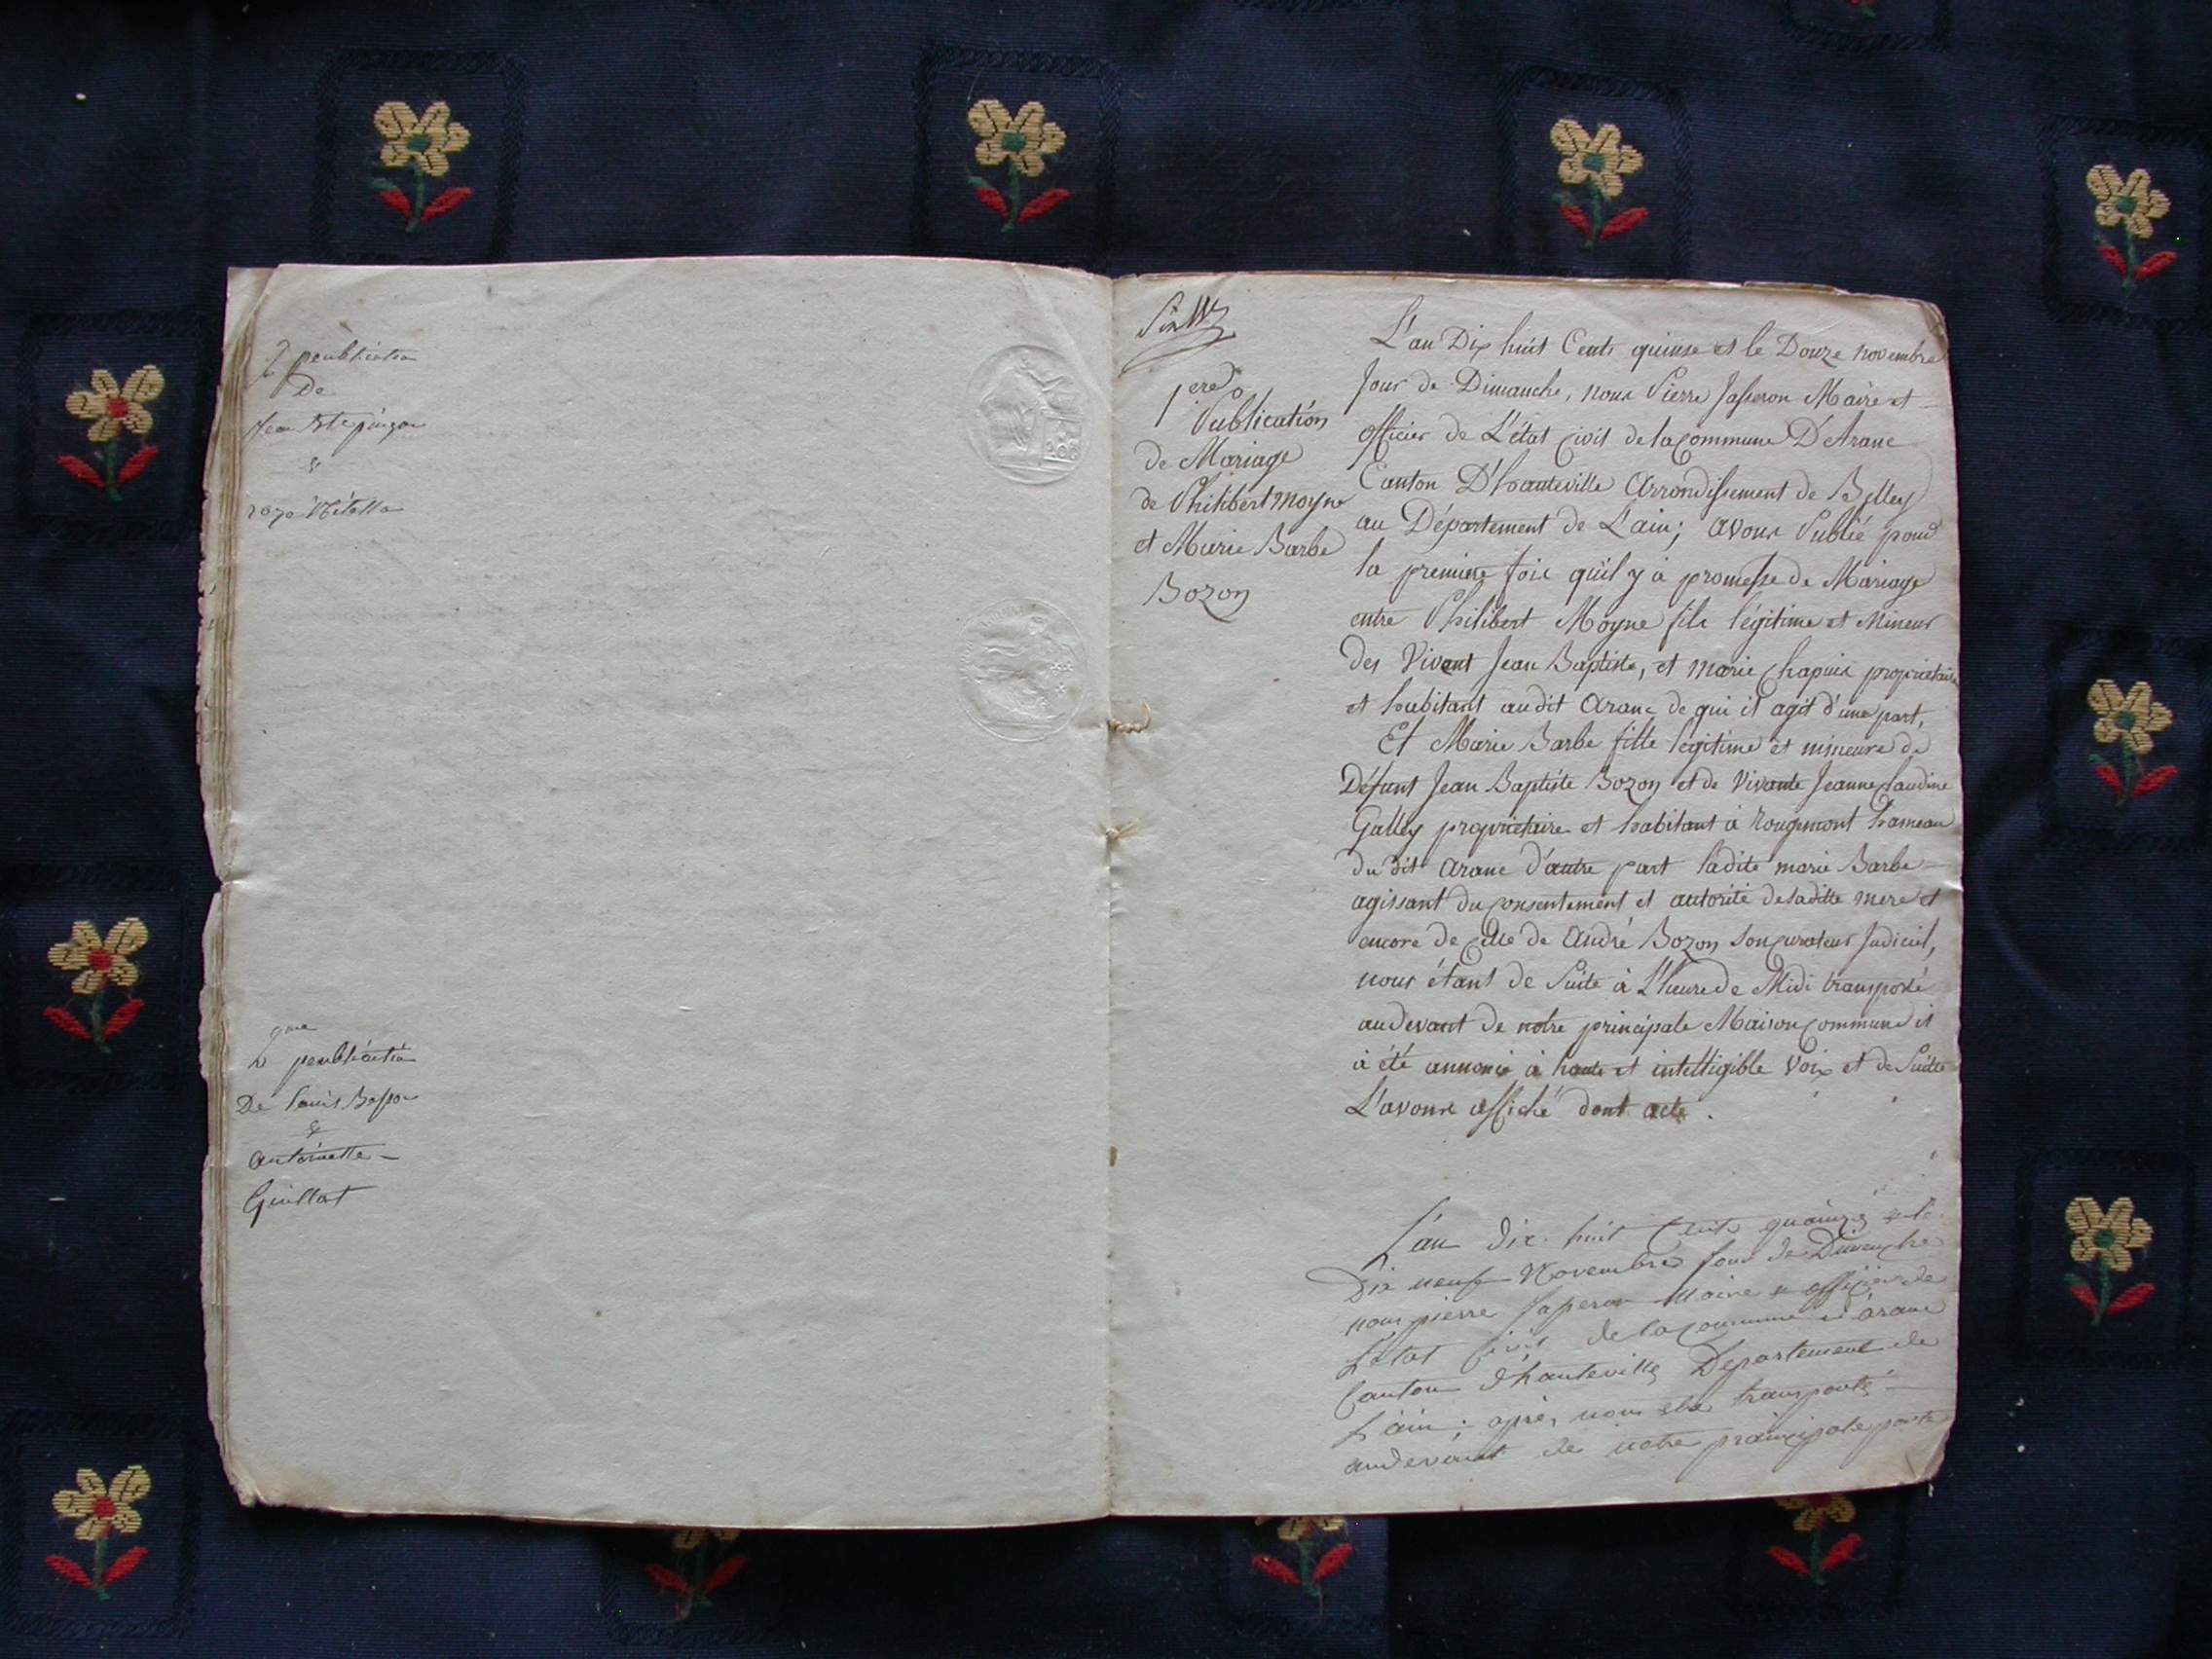 2 peublication
De
Jean Bte pingon
&
roza Vitallo
2 eme
peublication
De Louis Basson
&
antoinette -
Guillat
1ere
Publication
de Mariage
de Philibert moyne
et Marie Barbe
Bozon
L'an Dix huit Cents quinse et le Douze novembre
Jour de Dimanche, nous Pierre Jasseron Maire et
officier de L'état Civil de la Commune D'Aranc
Canton D'hauteville Arrondissement de Belley
au Département de L'ain; avons Publié pour
la premiere fois qu'il y à promesse de Mariage
entre Philibert Moyne fils légitime et Mineur
des Vivant Jean Baptiste, et marie Chapuis propriétaire
et habitant audit Aranc de qui il agit d'une part,
Et Marie Barbe fille légitime et mineure de
Défunt Jean Baptiste Bozon et de Vivante Jeanne Claudine
Galley propriétaire et habitant à rougemont hameau
du dit Aranc d'autre part ladite marie Barbe
agissant du Consentement et autorité de sadite mere et
encore de Celle de André Bozon son Curateur Judiciel,
nous étant de Suite à L'heure de Midi transporté
audevant de notre principale Maison Commune il
à été annoncé à haute et intelligible Voix et de Suitte
L'avons affiché dont acte.
L'an dix huit Cents quainze & le
Dix neuf Novembre jour de Dimenche
nous pierre Jasseron Maire & officier de
L'état Civil de la Commune d'aranc
Canton d'hauteville Departement de
L'ain; après nous etre transporté
audevant de notre principale porte